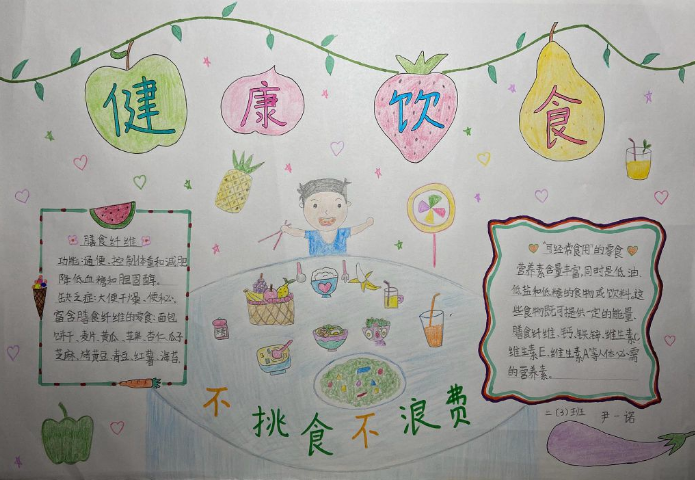 健康饮食
膳食纤维
功能:通便、控制体重和减肥
降低血糖和胆固醇。
缺乏症:大便干燥、便秘。
富含膳食纤维的零食:面包
饼干、麦片、黄瓜、芹菜、杏仁、瓜子
芝麻、烤黄豆、青豆、红薯、海苔
"可经常食用"的零食
营养素含量丰富,同时是低油、
低盐和低糖的食物或饮料,这
些食物既可提供一定的能量、
膳食纤维、钙、铁、锌、维生素C
维生素E、维生素A等人体必需
的营养素。
不挑食不浪费
二(3)班 尹一诺